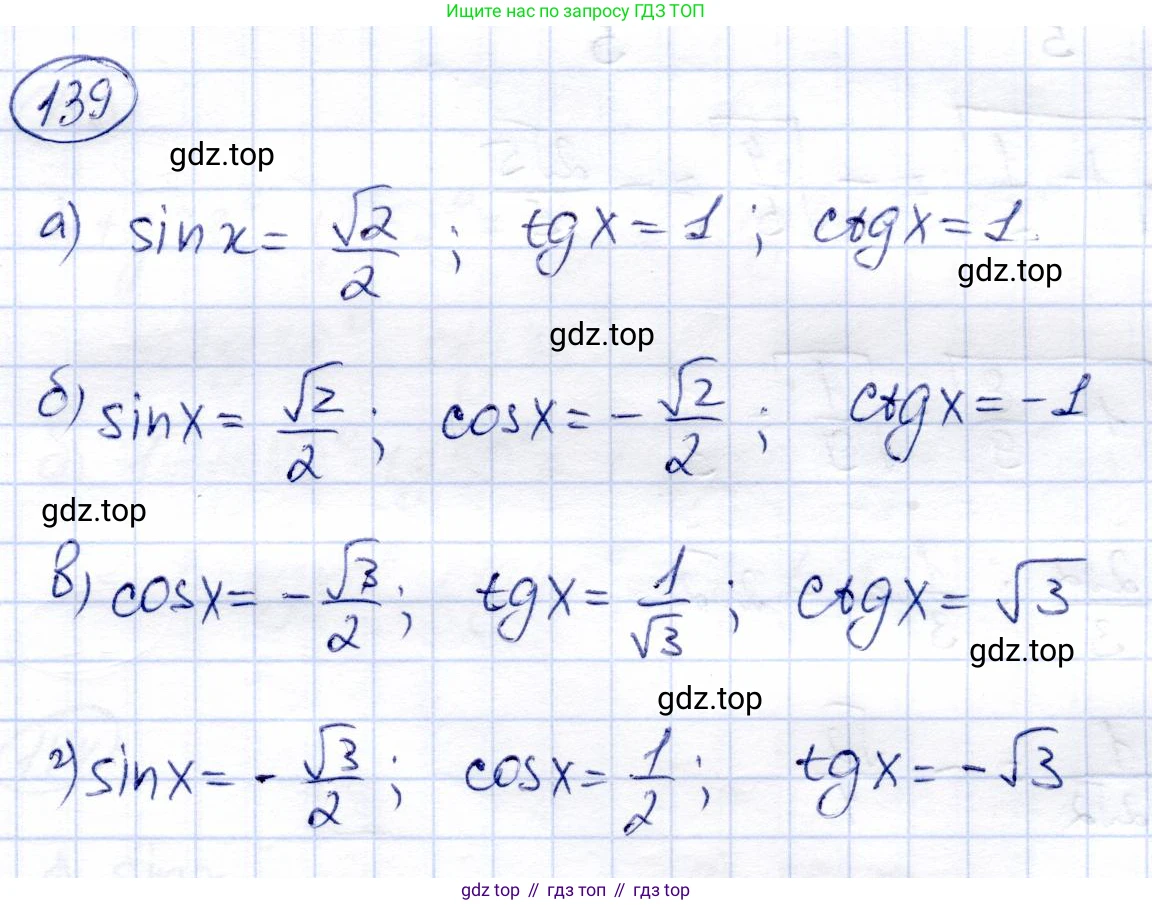 Ищите нас по запросу ГДЗ ТОП
139
gdz.top
а) sin x = √2/2 ; tg x = 1 ; ctg x = 1
gdz.top
gdz.top
б) sin x = √2/2 ; cos x = -√2/2 ; ctg x = -1
gdz.top
в) cos x = -√3/2 ; tg x = 1/√3 ; ctg x = √3
gdz.top
gdz.top
г) sin x = -√3/2 ; cos x = 1/2 ; tg x = -√3
gdz top // гдз топ // гдз top